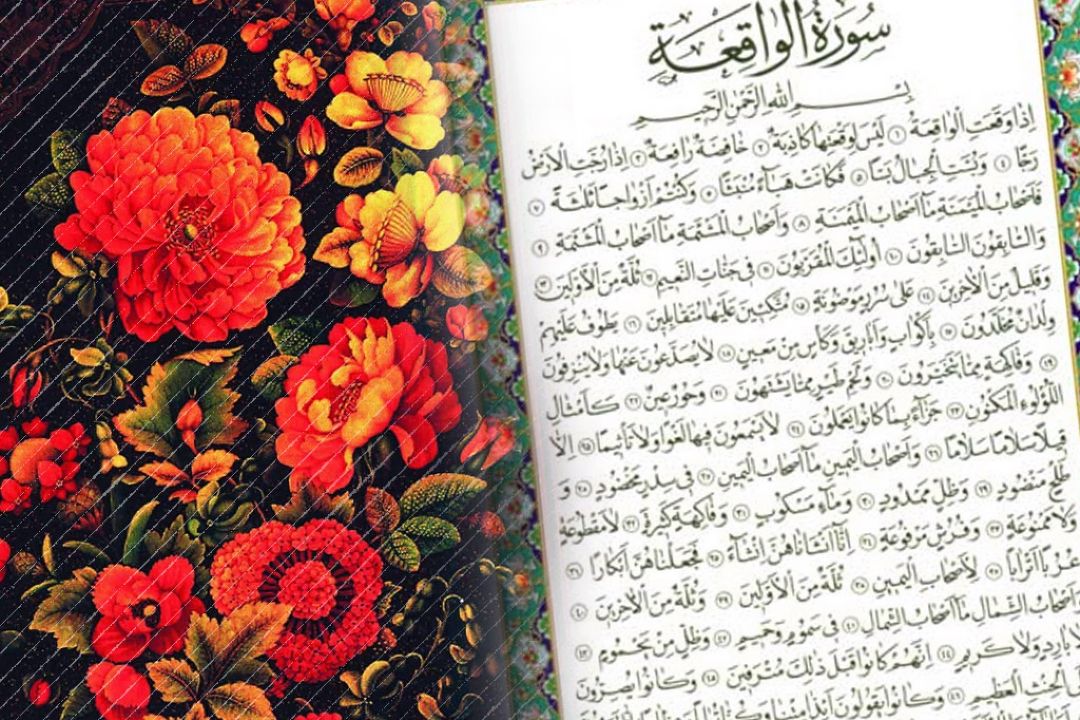 سُورَةُ الْوَاقِعَةِ
بِسْمِ اللهِ الرَّحْمٰنِ الرَّحِيمِ
اِذَا وَقَعَتِ الْوَاقِعَةُ ١ لَيْسَ لِوَقْعَتِهَا كَاذِبَةٌ ٢ خَافِضَةٌ رَافِعَةٌ ٣ اِذَا رُجَّتِ الْاَرْضُ
رَجًّا ٤ وَبُسَّتِ الْجِبَالُ بَسًّا ٥ فَكَانَتْ هَبَاءً مُنْبَثًّا ٦ وَكُنْتُمْ اَزْوَاجًا ثَلٰثَةً ٧
فَاَصْحَابُ الْمَيْمَنَةِ مَا اَصْحَابُ الْمَيْمَنَةِ ٨ وَاَصْحَابُ الْمَشْئَمَةِ مَا اَصْحَابُ الْمَشْئَمَةِ ٩
وَالسَّابِقُونَ السَّابِقُونَ ١٠ اُولٰئِكَ الْمُقَرَّبُونَ ١١ فِي جَنَّاتِ النَّعِيمِ ١٢ ثُلَّةٌ مِنَ الْاَوَّلِينَ ١٣
وَقَلِيلٌ مِنَ الْاٰخِرِينَ ١٤ عَلٰى سُرُرٍ مَوْضُونَةٍ ١٥ مُتَّكِئِينَ عَلَيْهَا مُتَقَابِلِينَ ١٦ يَطُوفُ عَلَيْهِمْ
وِلْدَانٌ مُخَلَّدُونَ ١٧ بِاَكْوَابٍ وَاَبَارِيقَ وَكَأْسٍ مِنْ مَعِينٍ ١٨ لَا يُصَدَّعُونَ عَنْهَا وَلَا يُنْزِفُونَ
١٩ وَفَاكِهَةٍ مِمَّا يَتَخَيَّرُونَ ٢٠ وَلَحْمِ طَيْرٍ مِمَّا يَشْتَهُونَ ٢١ وَحُورٌ عِينٌ ٢٢ كَاَمْثَالِ
اللُّؤْلُؤِ الْمَكْنُونِ ٢٣ جَزَاءً بِمَا كَانُوا يَعْمَلُونَ ٢٤ لَا يَسْمَعُونَ فِيهَا لَغْوًا وَلَا تَأْثِيمًا ٢٥ اِلَّا
قِيلًا سَلَامًا سَلَامًا ٢٦ وَاَصْحَابُ الْيَمِينِ مَا اَصْحَابُ الْيَمِينِ ٢٧ فِي سِدْرٍ مَخْضُودٍ ٢٨ وَ
طَلْحٍ مَنْضُودٍ ٢٩ وَظِلٍّ مَمْدُودٍ ٣٠ وَمَاءٍ مَسْكُوبٍ ٣١ وَفَاكِهَةٍ كَثِيرَةٍ ٣٢ لَا مَقْطُوعَةٍ
وَلَا مَمْنُوعَةٍ ٣٣ وَفُرُشٍ مَرْفُوعَةٍ ٣٤ اِنَّا اَنْشَأْنَاهُنَّ اِنْشَاءً ٣٥ فَجَعَلْنَاهُنَّ اَبْكَارًا ٣٦
عُرُبًا اَتْرَابًا ٣٧ لِاَصْحَابِ الْيَمِينِ ٣٨ ثُلَّةٌ مِنَ الْاَوَّلِينَ ٣٩ وَثُلَّةٌ مِنَ الْاٰخِرِينَ ٤٠
وَاَصْحَابُ الشِّمَالِ مَا اَصْحَابُ الشِّمَالِ ٤١ فِي سَمُومٍ وَحَمِيمٍ ٤٢ وَظِلٍّ مِنْ يَحْمُومٍ ٤٣
لَا بَارِدٍ وَلَا كَرِيمٍ ٤٤ اِنَّهُمْ كَانُوا قَبْلَ ذٰلِكَ مُتْرَفِينَ ٤٥ وَكَانُوا يُصِرُّونَ
الْحِنْثِ الْعَظِيمِ ٤٦ وَكَانُوا يَقُولُونَ اَئِذَا مِتْنَا وَكُنَّا